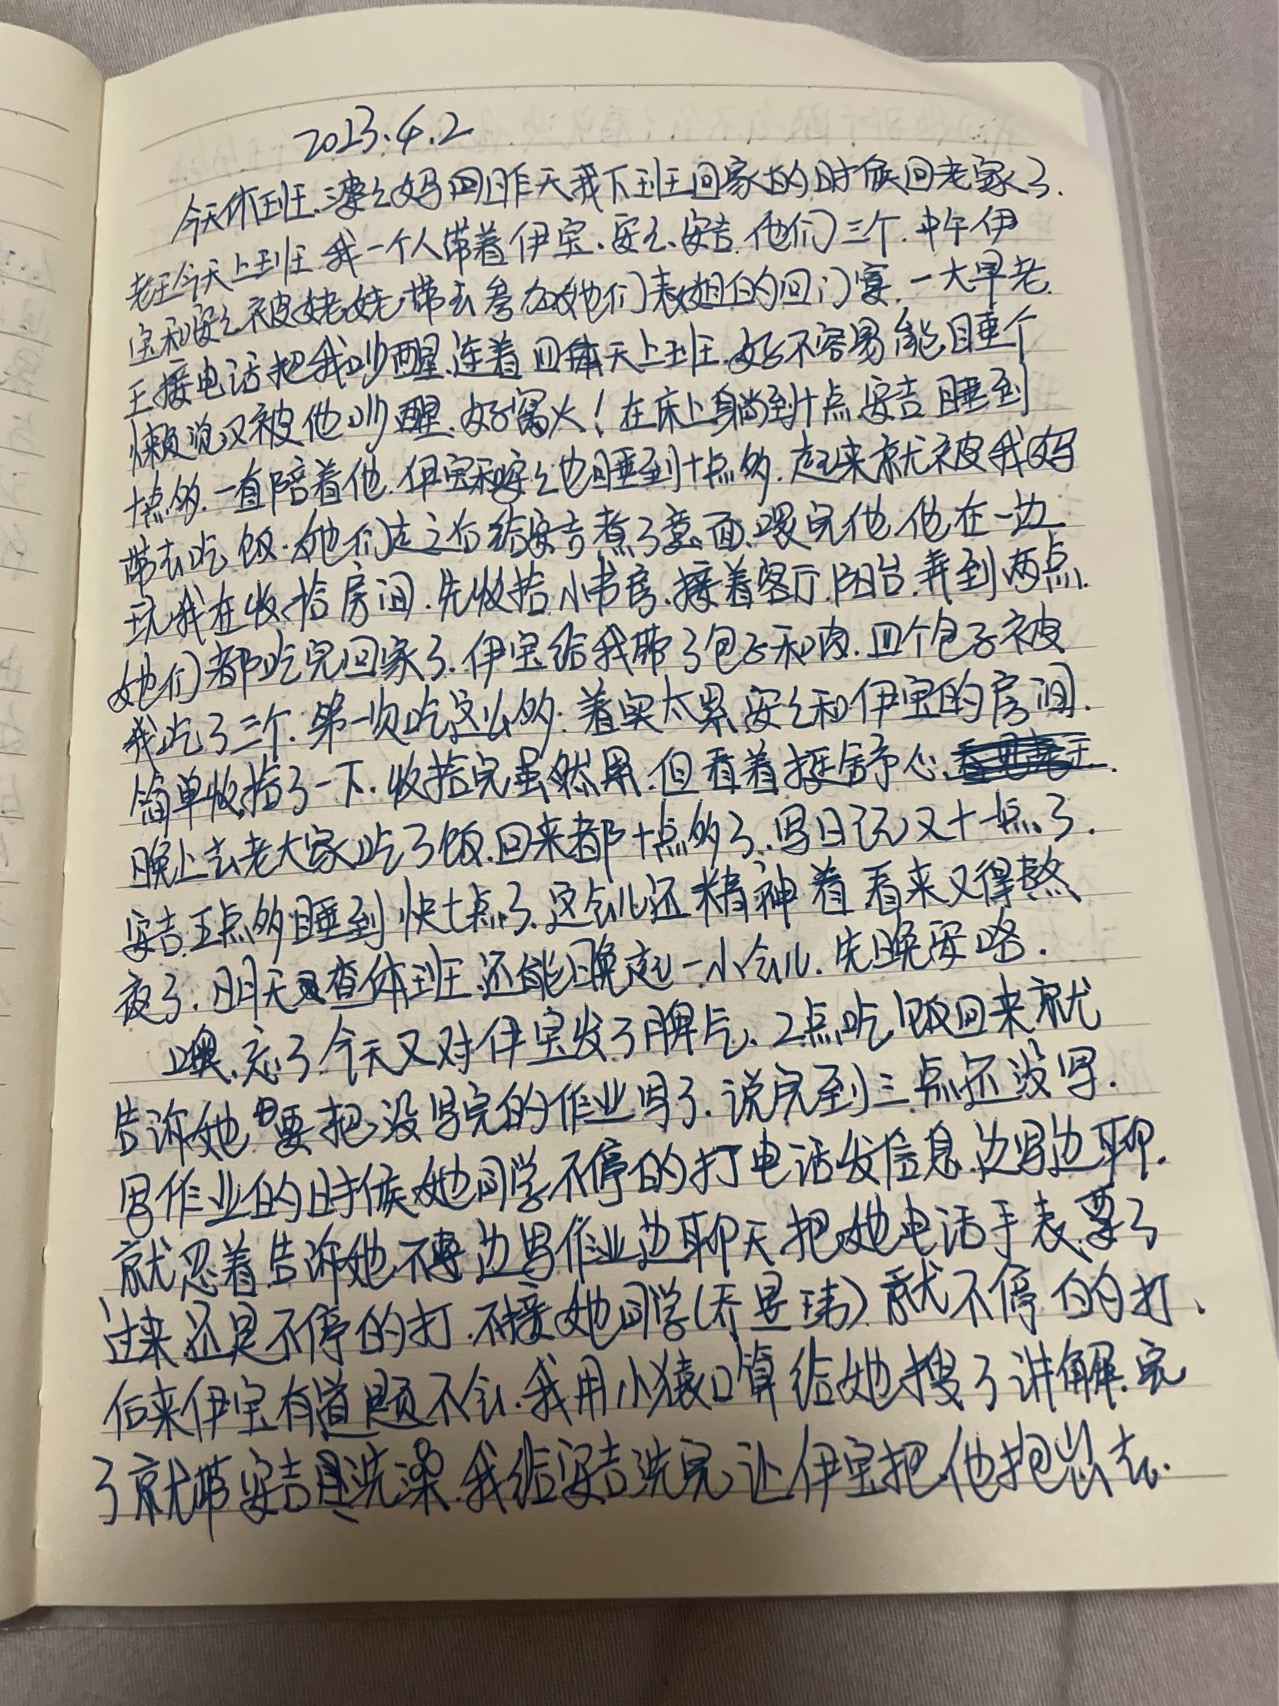 2023.4.2
今天休班.婆婆妈四昨天我下班回家的时候回老家了.
老王今天上班.我一个人带着伊宝.安安、安吉.他们三个.中午伊
宝和安安被姥姥带去参加她们表姐的回门宴.一大早老
王接电话把我吵醒.连着四天上班.好不容易能睡个
懒觉又被他吵醒.好窝火!在床上躺到十点安吉睡到
十点多.一直陪着他.伊宝和安安也睡到十点多.起来就被我妈
带去吃饭.她们走之后给安吉煮了意面.喂完他.他在一边
玩我在收拾房间.先收拾小书房.接着客厅.阳台.弄到两点.
她们都吃完回家了.伊宝给我带了包子和肉.四个包子被
我吃了三个.第一次吃这么多.着实太累.安安和伊宝的房间.
简单收拾了一下.收拾完虽然累.但看着挺舒心.
晚上去老大家吃了饭.回来都十点多了.写日记又十一点了.
安吉五点多睡到快十点了.这会儿还精神着看来又得熬
夜了.明天查体班.还能晚起一小会儿.先晚安咯.
噢.忘了.今天又对伊宝发了脾气.2点吃饭回来就
告诉她要把没写完的作业写了.说完到三点还没写.
写作业的时候她同学不停的打电话发信息.边写边聊.
就忍着告诉她不要边写作业边聊天.把她电话手表要了
过来还是不停的打.不接她同学(乔昱玮)就不停的打.
后来伊宝有道题不会.我用小猿口算给她搜了讲解.完
了就带安吉洗澡.我给安吉洗完让伊宝把他抱出去.